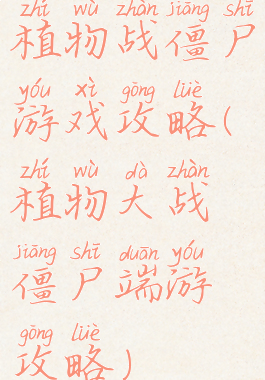 zhí wù zhàn jiāng shī
植物战僵尸
yóu xì gōng lüè
游戏攻略(
zhí wù dà zhàn
植物大战
jiāng shī duān yóu
僵尸端游
gōng lüè
攻略)